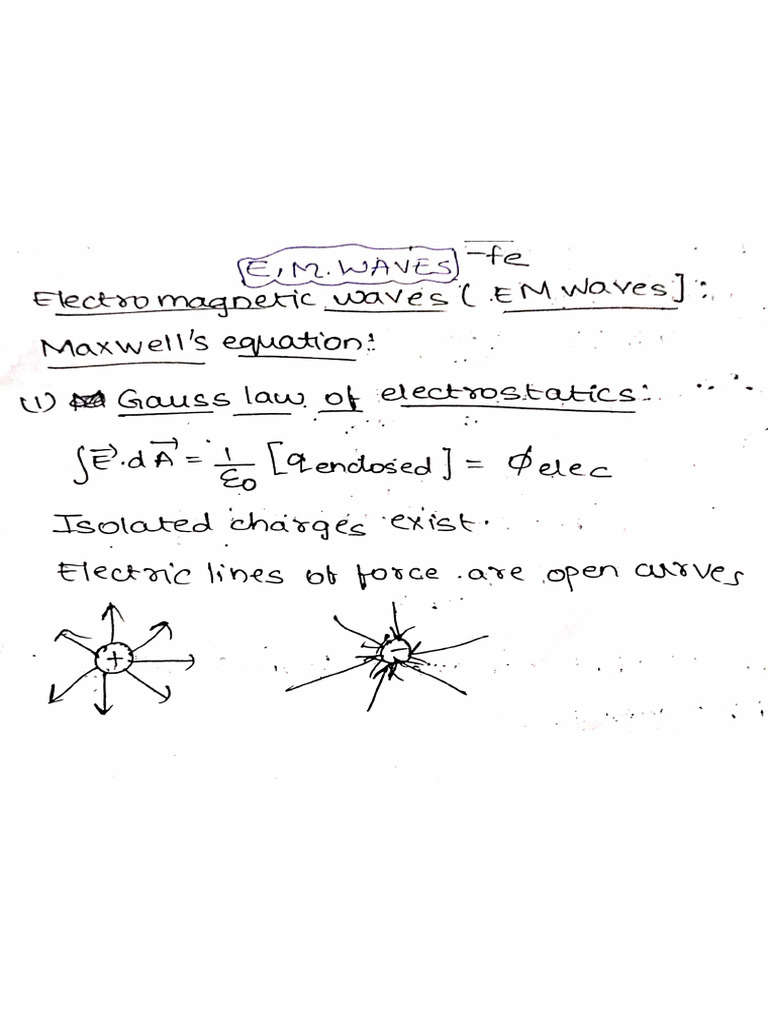 E, M. WAVES
Electromagnetic waves ( EM Waves] :
Maxwell's equation:
(1) Gauss law of electrostatics:
∫E⃗.dA⃗ = 1/ε0 [qenclosed] = ϕelec
Isolated charges exist.
Electric lines of force are open curves
+ −